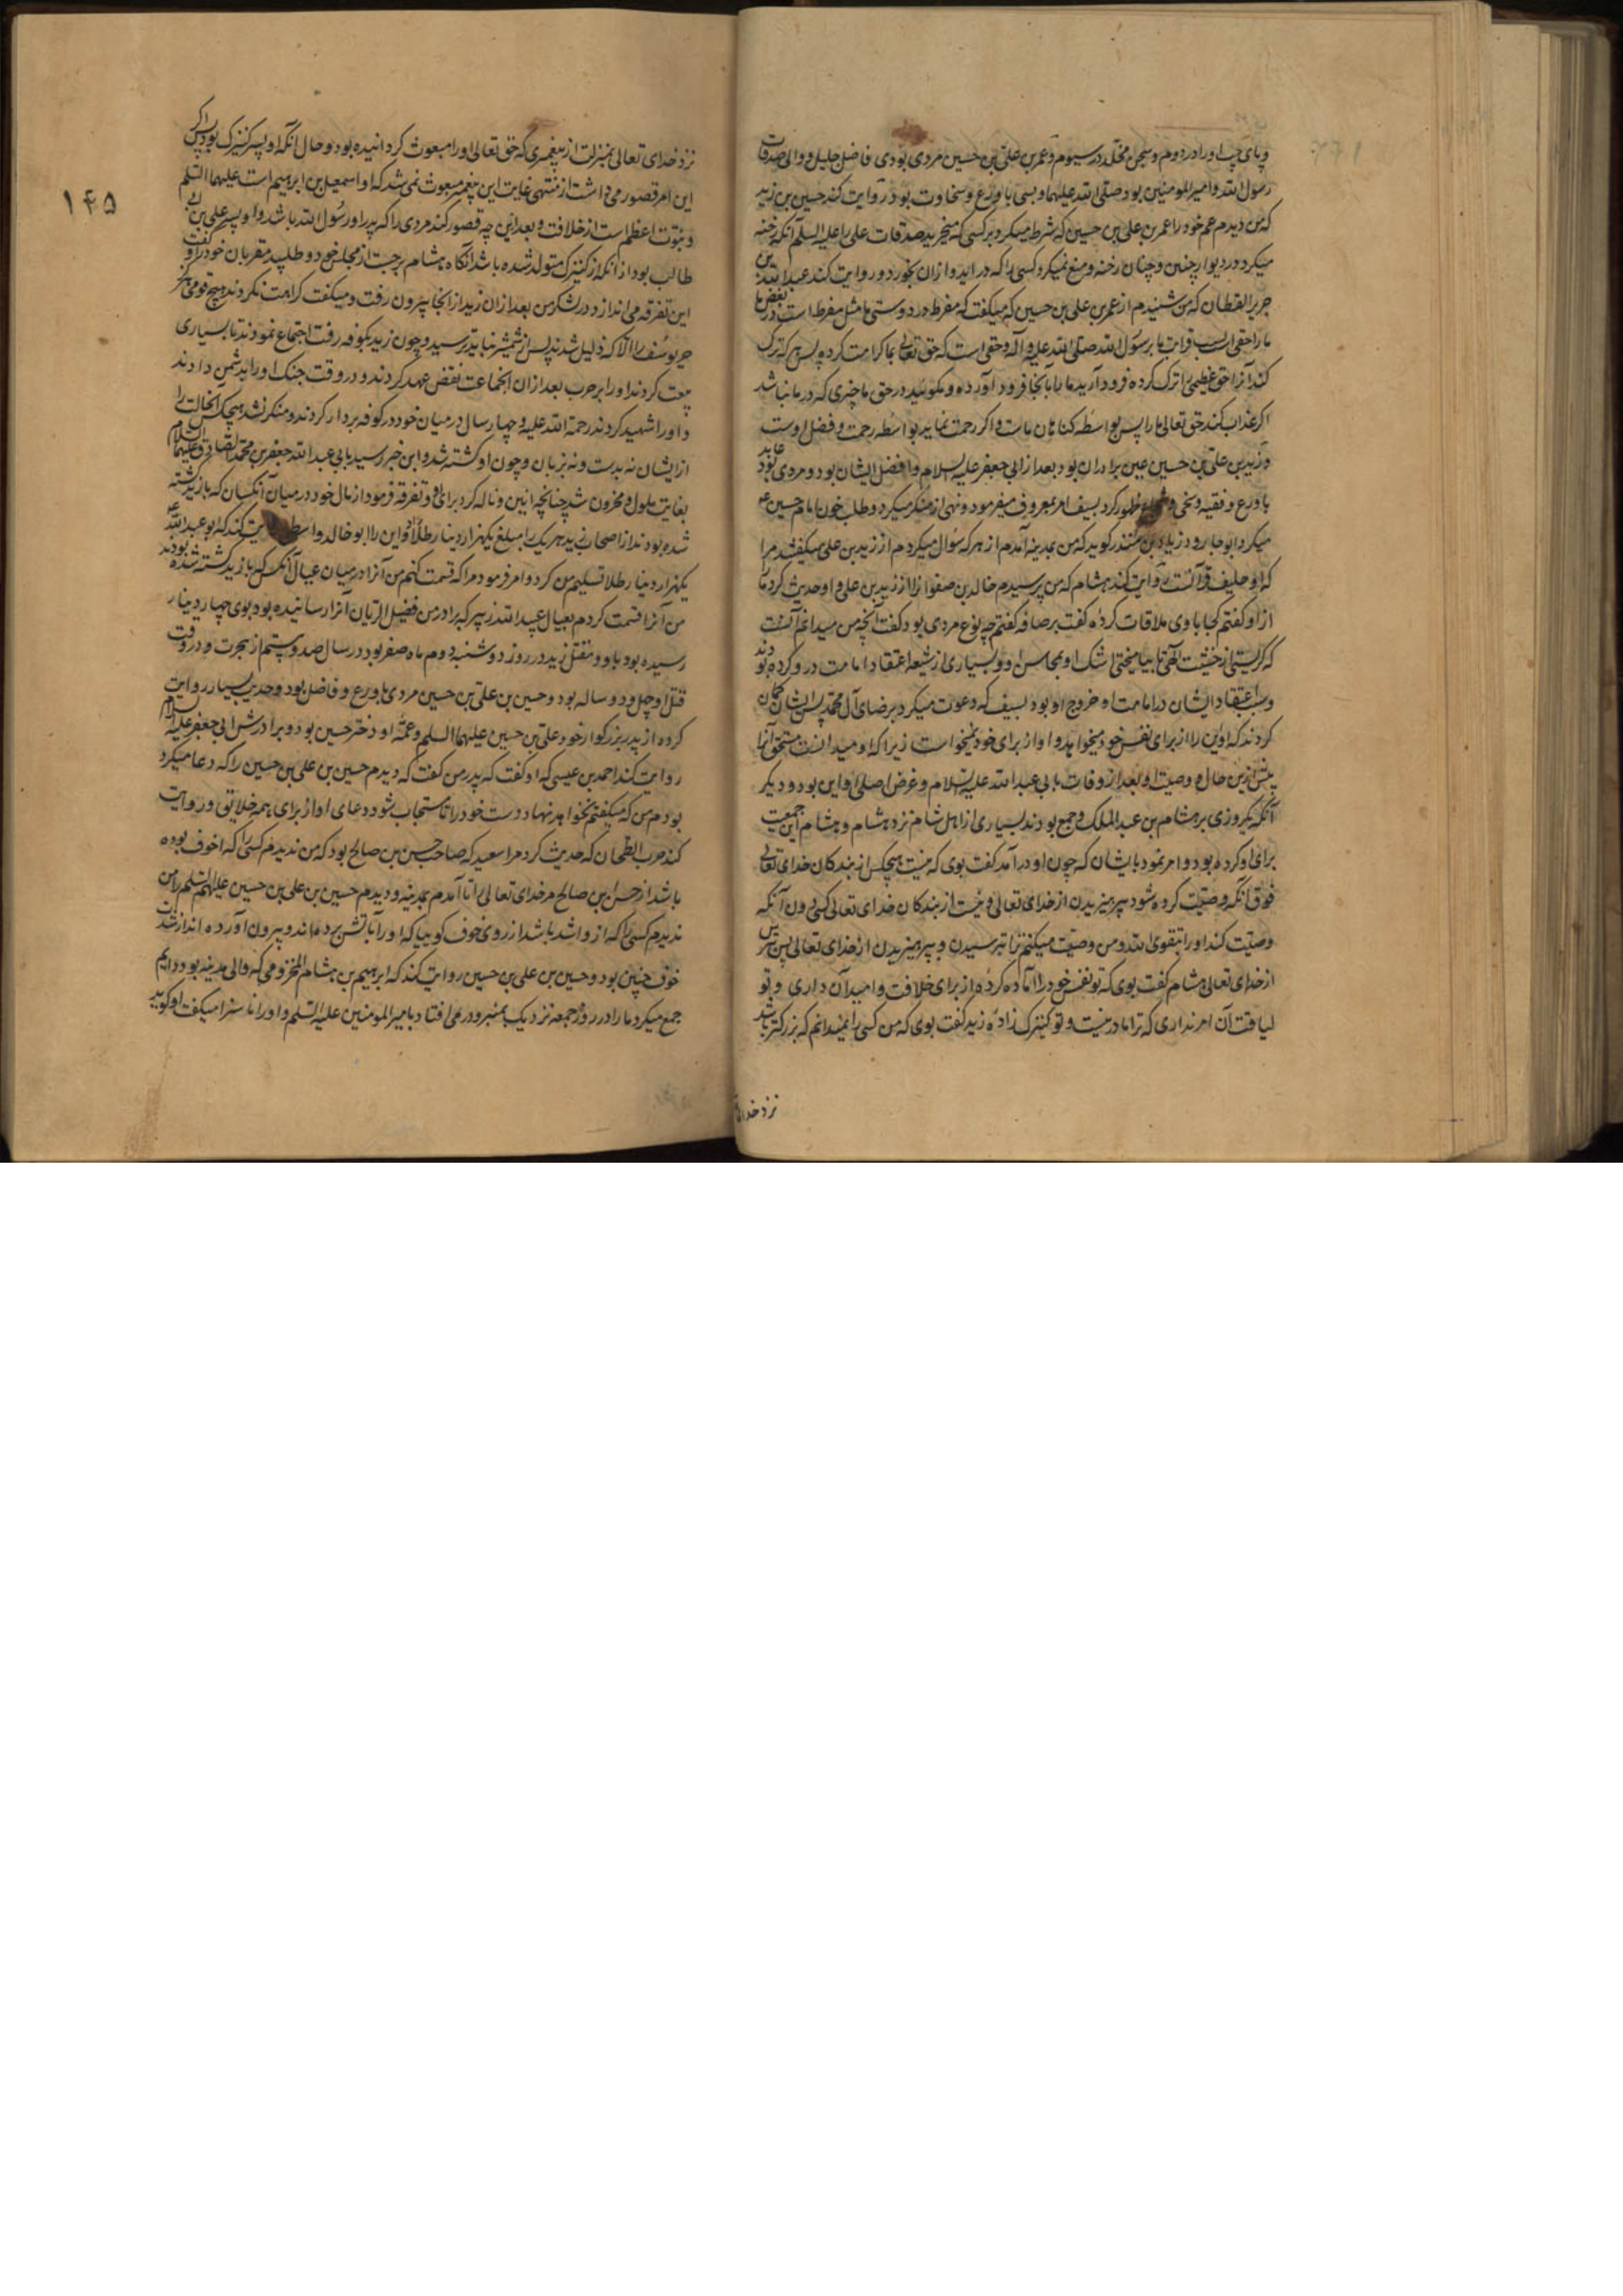 و پای چپ او را در دوم و سجن مخلد در سیوم و عمر بن علی بن حسین مردی بودی فاضل جلیل و والی صدقات
رسول الله و امیر المومنین بود صلی الله علیهما و بسی با ورع و سخاوت بود و روایت کند حسین بن زید
که من دیدم عم خود را عمر بن علی بن حسین که شرط میکرد بر کسی که میخرید صدقات علی را علیه السلم آنکه رخنه
میکرد در دیوار چنین و چنان رخنه و منع نمیکرد کسی را که در آید و ازان بخورد و روایت کند عبد الله بن
جریر القطان که من شنیدم از عمر بن علی بن حسین که میگفت که مفرط در دوستی ما مثل مفرط است در بغض ما
ما را حقی است بسبب قرابت ما برسول الله صلی الله علیه و آله و حقی است که حق تعالی بما کرامت کرده پس هر که ترک
کند آنرا حق عظیمی را ترک کرده فرود آرید ما را بآنجا فرود آورده و مگوئید در حق ما چیزی که در ما نباشد
اگر عذاب کند حق تعالی ما را پس بواسطه کناهان ماست و اگر رحمت نماید بواسطه رحمت و فضل اوست
و زید بن علی بن حسین عین برادران بود بعد از ابی جعفر علیه السلام و افضل ایشان بود و مردی عابد بود
با ورع و فقیه و سخی و ظهور کرد بسیف امر بمعروف میفرمود و نهی از منکر میکرد و طلب خون امام حسین ع
میکرد ابو جارود زیاد بن منذر کوید که من بمدینه آمدم از هر که سؤال میکردم از زید بن علی میگفتند مرا
که او حلیف قرآنست روایت کند هشام که من پرسیدم خالد بن صفوانرا از زید بن علی و او حدیث کرد ما
از او گفتم کجا با وی ملاقات کردهٔ گفت برصافه گفتم چه نوع مردی بود گفت آنچه من میدانم آنست
که کریستی از خشیت الهی تا بیامیختی اشک او بمحاسن او و بسیاری از شیعه اعتقاد امامت در و کرده بودند
و سبب اعتقاد ایشان در امامت او خروج او بود بسیف که دعوت میکرد برضای آل محمد پس ایشان گمان
کردند که او این را از برای نفس خود میخواهد و او از برای خود نمیخواست زیرا که او میدانست مستحق آنرا
پیش ازین حال و وصیت او بعد از وفات بابی عبد الله علیه السلام و غرض اصلی او این بود و دیگر
آنکه یکروزی بر هشام بن عبد الملک و جمع بودند بسیاری از اهل شام نزد هشام و هشام این جمعیت
برای او کرده بود و امر نموده بایشان که چون او در آمد گفت بوی که نیست هیچکس از بندکان خدای تعالی
فوق آنکه وصیت کرده شود بپرهیزیدن از خدای تعالی و نیست از بندکان خدای تعالی کسی دون آنکه
وصیت کند او را بتقوی الله و من وصیت میکنم ترا بترسیدن و بپرهیزیدن از خدای تعالی پس بترس
از خدای تعالی هشام گفت بوی که تو نفس خود را آماده کردهٔ از برای خلافت و امید آن داری و تو
لیاقت آن امر نداری که ترا مادر نیست و تو کنیزک زادهٔ زید گفت بوی که من کسی را نمیدانم که بزرکتر باشد
نزد خدای
۱۴۵
نزد خدای تعالی بمنزلت از پیغمبری که حق تعالی او را مبعوث کردانیده بود و حال آنکه او پسر کنیزک بود پس اگر
این امر قصور می داشت از منتهی غایت این پیغمبر مبعوث نمی شد که او اسمعیل بن ابرهیم است علیهما السلم
و نبوت اعظم است از خلافت و بعد این چه قصور کند مردی را که پدر او رسول الله باشد و او پسر علی بن ابی
طالب بود از آنکه از کنیزک متولد شده باشد آنکاه هشام برجست از مجلس خود و طلبید مقربان خود را و گفت
این تفرقه می اندازد در لشکر من بعد ازان زید از انجا بیرون رفت و میگفت کراهت نکردند هیچ قومی هرگز
حر سیوف را الا که ذلیل شدند پس از شمشیر نباید ترسید و چون زید بکوفه رفت اجتماع نمودند تا بسیاری
بیعت کردند او را بر حرب بعد ازان انجماعت نقض عهد کردند و در وقت جنک او را بدشمن دادند
و او را شهید کردند رحمة الله علیه و چهار سال در میان خود در کوفه بردار کردند و منکر نشد هیچکس آنحالت را
از ایشان نه بدست و نه بزبان و چون او کشته شد و این خبر رسید بابی عبد الله جعفر بن محمد الصادق علیهما السلام
بغایت ملول و محزون شد چنانچه انین و ناله کرد برای او و تفرقه فرمود از مال خود در میان آنکسان که با زید کشته
شده بودند از اصحاب زید هر یک را مبلغ یکهزار دینار طلا و این را ابو خالد واسطی کند که ابو عبد الله ع
یکهزار دینار طلا تسلیم من کرد و امر فرمود مرا که قسمت کنم من آنرا در میان عیال آنکس که با زید کشته شده بودند
من آنرا قسمت کردم بعیال عبد الله زبیر که برادر من فضیل الریان آنرا رسانیده بود بوی چهار دینار
رسیده بود باو و مقتل زید در روز دوشنبه دوم ماه صفر بود در سال صد و بیستم از هجرت و در وقت
قتل او چهل و دو ساله بود و حسین بن علی بن حسین مردی با ورع و فاضل بود و حدیث بسیار روایت
کرده از پدر بزرکوار خود علی بن حسین علیهما السلم و عمهٔ او دختر حسین بود و برادرش ابی جعفر علیه السلام
روایت کند احمد بن عیسی که او گفت که پدر من گفت که دیدم حسین بن علی بن حسین را که دعا میکرد
بودم من که میگفتم نخواهد نهاد دست خود را تا مستجاب شود دعای او از برای همه خلایق و روایت
کند حرب الطحان که حدیث کرد مرا سعید که صاحب حسن بن صالح بود که من ندیدم کسی را که اخوف بوده
باشد از حسن بن صالح مر خدای تعالی را تا آمدم بمدینه و دیدم حسین بن علی بن حسین علیهم السلم را من
ندیدم کسی را که از و اشد باشد از روی خوف گوییا که او را بآتش برده اند و بیرون آورده اند از شدت
خوف چنین بود و حسین بن علی بن حسین روایت کند که ابرهیم بن هشام المخزومی که والی مدینه بود دایم
جمع میکرد ما را در روز جمعه نزدیک بمنبر و در می افتاد بامیر المومنین علیه السلم و او را ناسزا میگفت او گوید